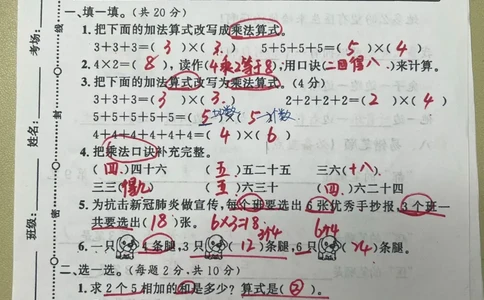 一、填一填。(共20分)
1. 把下面的加法算式改写成乘法算式。
3+3+3=( 3 )×( 3 ) 5+5+5+5=( 5 )×( 4 )
2. 4×2=( 8 ),读作(4乘2等于8),用口诀(二四得八)来计算。
3. 把下面的加法算式改写为乘法算式。(4分)
3+3+3=( 3 )×( 3 ) 2+2+2+2=( 2 )×( 4 )
5+5+5+5+5=( 5 )×( 5 )
4+4+4+4+4+4=( 4 )×( 6 )
4. 把乘法口诀补充完整。
( 四 )四十六 ( 五 )五二十五 三六(十八)
三三(得九) ( 三 )六三十 ( 四 )六二十四
5. 为抗击新冠肺炎做宣传,每个班要选出6张优秀手抄报,3个班一
共要选出( 18 )张。 6×3=18
6. 一只 4条腿,3只 ( 12 )条腿,6只 ( 24 )条腿。
二、选一选。(每题2分,共10分)
1. 求2个5相加的和是多少?算式是( ② )。
考场:
姓名:
班级:
线
封
密